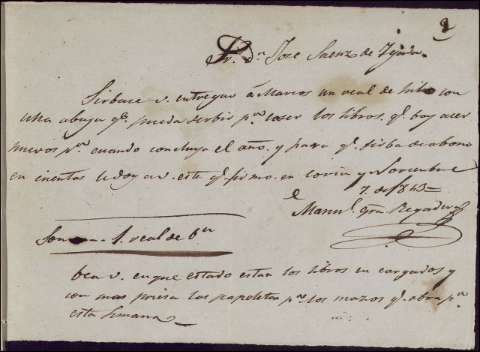 Sr. Dn. José Saenz de Tejada.
Sirbase v. entregar á Marcos un real de hilo con
una abuja qe. pueda serbir pa. coser los libros, qe. boy acer
nuevos pa. cuando concluya el año, y para qe. sirba de abono
en cuenta le doy a v. este qe. firmo en y Noviembre
7. de 1843=
Manul.
Son 1. real de
bea v. en que estado estan los libros en cargados y
con mas priesa las papeletas pa. los mazos qe. pa.
esta semana